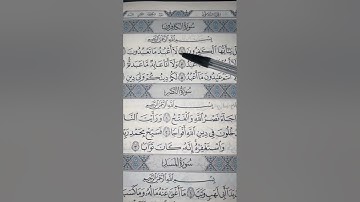 سُورَةُ الكَافِرُونَ
بِسْمِ اللَّهِ الرَّحْمَٰنِ الرَّحِيمِ
يَٰٓأَيُّهَا الْكَٰفِرُونَ لَا أَعْبُدُ مَا تَعْبُدُونَ
أَعْبُدُ وَلَا أَنَا عَابِدٌ مَّا عَبَدتُّمْ
عَٰبِدُونَ مَا أَعْبُدُ لَكُمْ دِينُكُمْ وَلِيَ دِينِ
سُورَةُ النَّصْرِ
بِسْمِ اللَّهِ الرَّحْمَٰنِ الرَّحِيمِ
جَاءَ نَصْرُ اللَّهِ وَالْفَتْحُ وَرَأَيْتَ النَّاسَ
يَدْخُلُونَ فِي دِينِ اللَّهِ أَفْوَاجًا فَسَبِّحْ بِحَمْدِ رَبِّكَ
وَاسْتَغْفِرْهُ إِنَّهُ كَانَ تَوَّابًا
سُورَةُ المَسَدِ
بِسْمِ اللَّهِ الرَّحْمَٰنِ الرَّحِيمِ
يَدَا أَبِي لَهَبٍ وَتَبَّ مَا أَغْنَىٰ عَنْهُ مَالُهُ وَمَا كَسَبَ